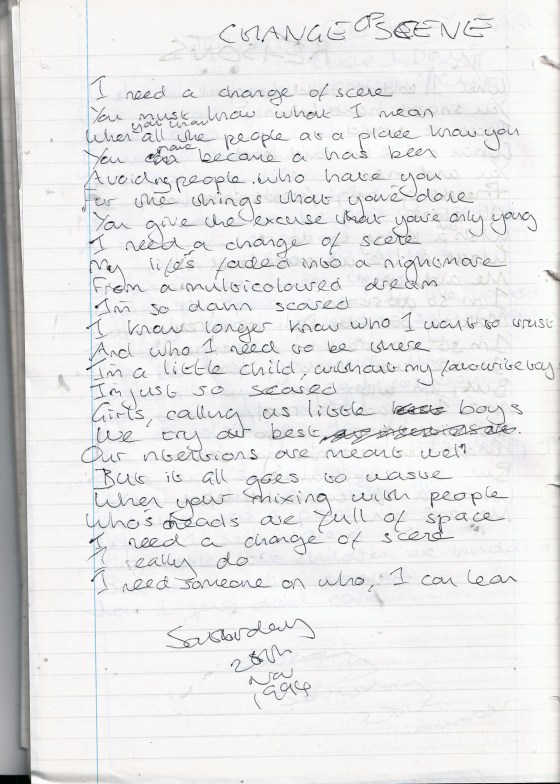 CHANGE OF SCENE
I need a change of scene
You must know what I mean
When you know all the people at a place know you
You have became a has been
Avoiding people who hate you
For the things that you've done
You give the excuse that you're only young
I need a change of scene
My life's faded into a nightmare
From a multicoloured dream
I'm so damn scared
I know longer know who I want to trust
And who I need to be there
I'm a little child, without my favourite toy
I'm just so scared
Girls, calling us little boys
We try our best
Our intentions are meant well
But it all goes to waste
When your mixing with people
Who's heads are full of space
I need a change of scene
I really do
I need someone on who, I can lean
Saturday
Nov
1994